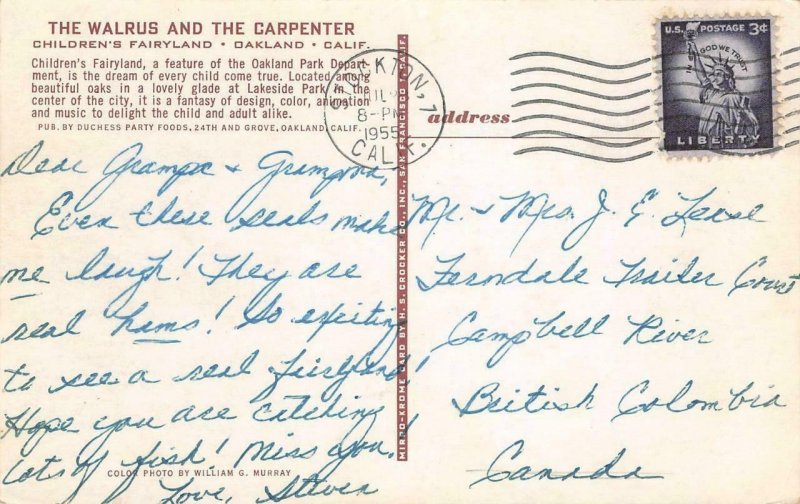 THE WALRUS AND THE CARPENTER
CHILDREN'S FAIRYLAND • OAKLAND • CALIF.
Children's Fairyland, a feature of the Oakland Park Depart-
ment, is the dream of every child come true. Located among
beautiful oaks in a lovely glade at Lakeside Park in the
center of the city, it is a fantasy of design, color, animation
and music to delight the child and adult alike.
PUB. BY DUCHESS PARTY FOODS, 24TH AND GROVE, OAKLAND, CALIF.
Dear Grampa & Grampma,
Even these seals make
me laugh! They are
real hams! So exciting
to see a real fairyland!
Hope you are catching
lots of fish! Miss you!
Love, Steven
COLOR PHOTO BY WILLIAM G. MURRAY
MIRRO-KROME CARD BY H. S. CROCKER CO., INC., SAN FRANCISCO 1, CALIF.
STOCKTON, 1
8-PM
1955
CALIF.
address
U.S. POSTAGE 3¢
IN GOD WE TRUST
LIBERTY
Mr. & Mrs. J. E. Lease
Ferndale Trailer Court
Campbell River
British Colombia
Canada